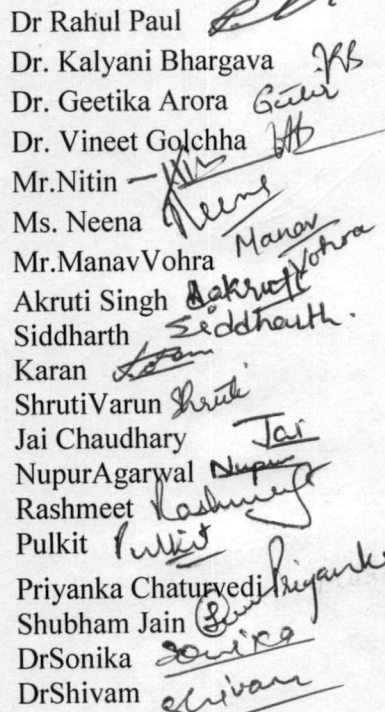 Dr Rahul Paul
Dr. Kalyani Bhargava
Dr. Geetika Arora
Dr. Vineet Golchha
Mr.Nitin
Ms. Neena Neena
Mr.ManavVohra Manav Vohra
Akruti Singh Aakruti
Siddharth Siddharth.
Karan Karan
ShrutiVarun Shruti
Jai Chaudhary Jai
NupurAgarwal Nupur
Rashmeet Rashmeet
Pulkit Pulkit
Priyanka Chaturvedi Priyanka
Shubham Jain
DrSonika Sonika
DrShivam Shivam